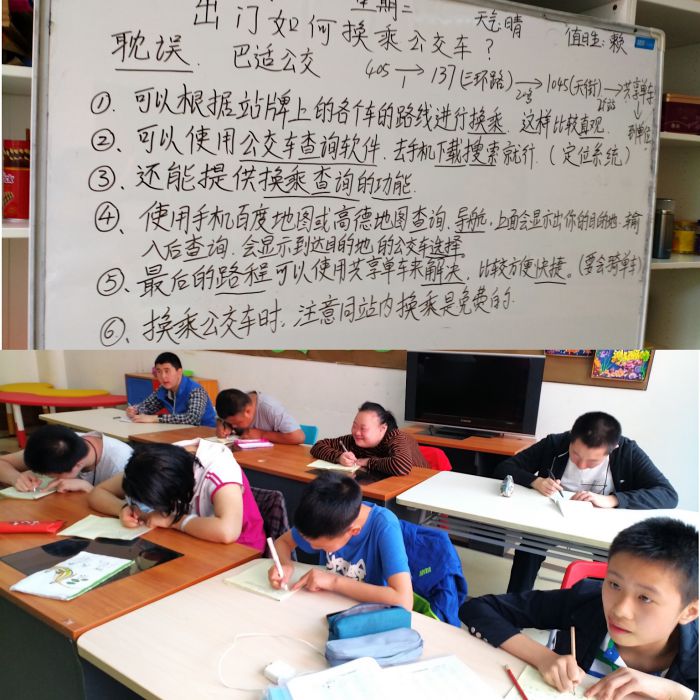 星期二
出门如何换乘公交车？
天气:晴
值日生:赖
耽误.
巴适公交
405 → 137(三环路) → 1045(天街) → 共享单车
1
2号
→到单位
①、可以根据站牌上的各个车的路线进行换乘.这样比较直观.
②、可以使用公交车查询软件.去手机下载搜索就行.(定位系统)
③、还能提供换乘查询的功能.
④、使用手机百度地图或高德地图查询.导航.上面会显示出你的目的地.输
入后查询.会显示到达目的地的公交车选择.
⑤、最后的路程可以使用共享单车来解决.比较方便快捷.(要会骑单车)
⑥、换乘公交车时.注意同站内换乘是免费的.